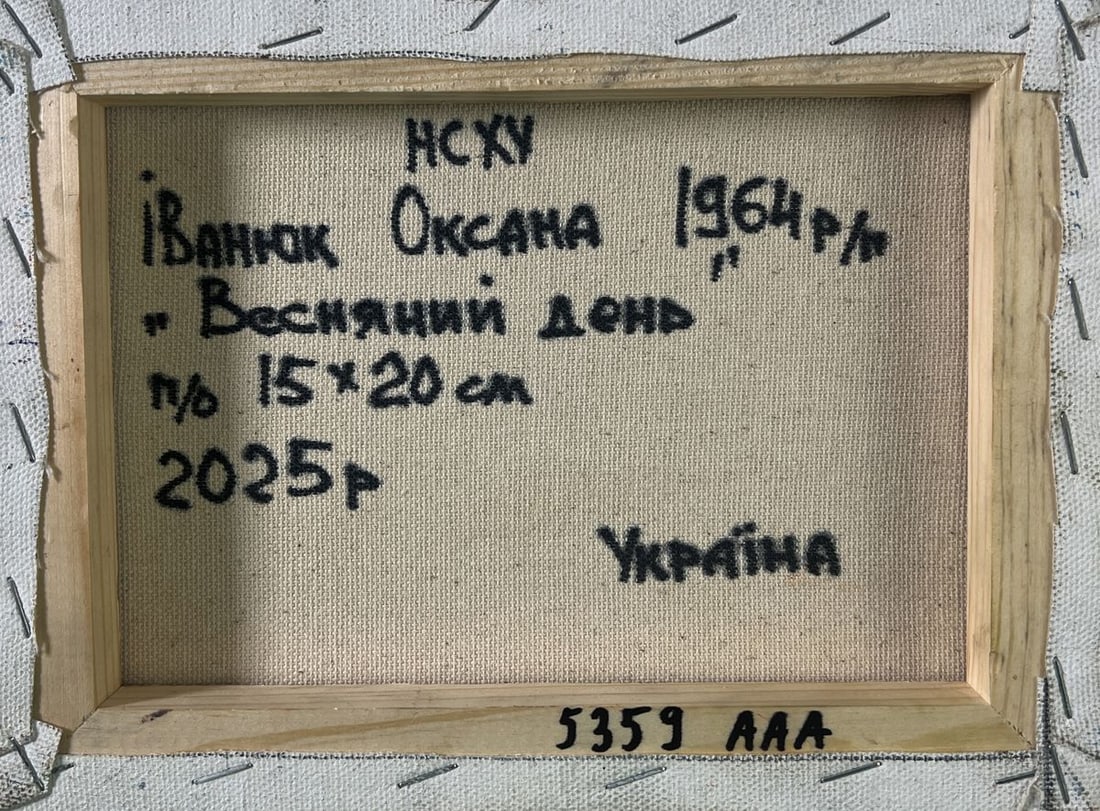 НСХУ
Іванюк Оксана 1964 р/н
„ Весняний день "
п/о 15 х 20 см
2025 р
Україна
5359 ААА